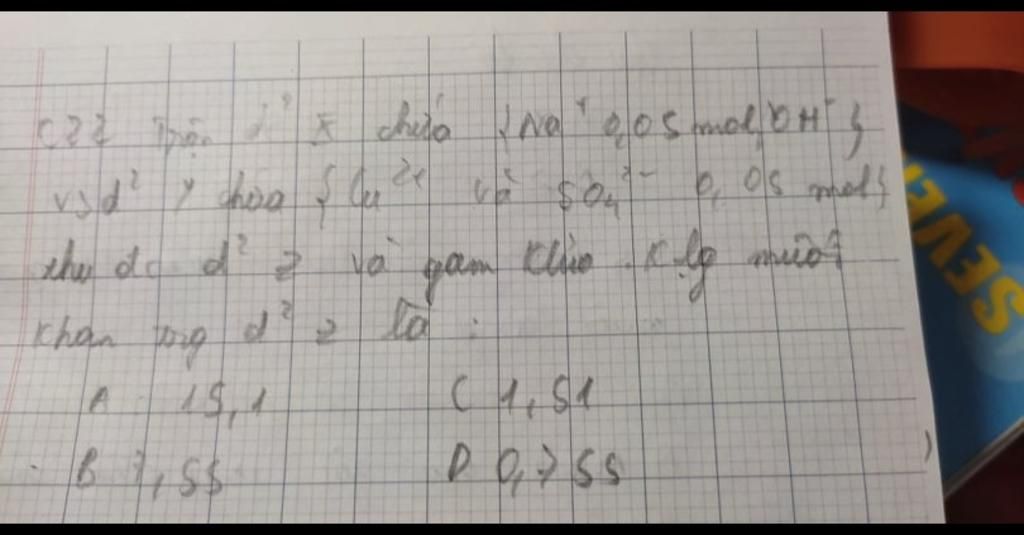 C22 Trộn d² X chứa {Na⁺ 0,05 mol, OH⁻}
vs d² Y chứa {Cu²⁺ và SO₄²⁻ 0,05 mol}
thu dc d² Z và gam
khan trog d² Z là :
A 15,1 C 1,51
B 7,55 D 0,755
SEVE